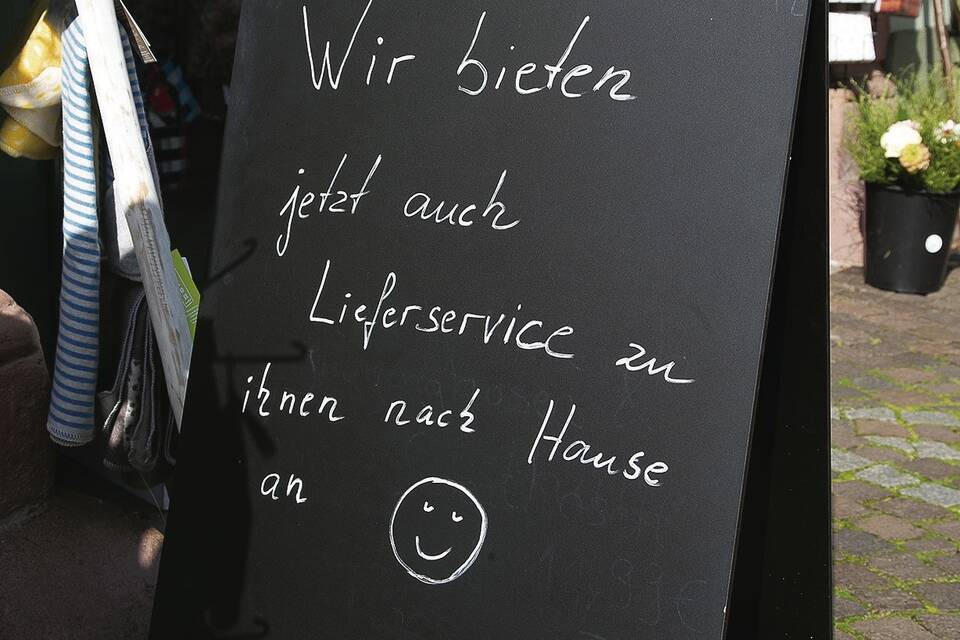 Wir bieten
jetzt auch
Lieferservice zu
ihnen nach Hause
an